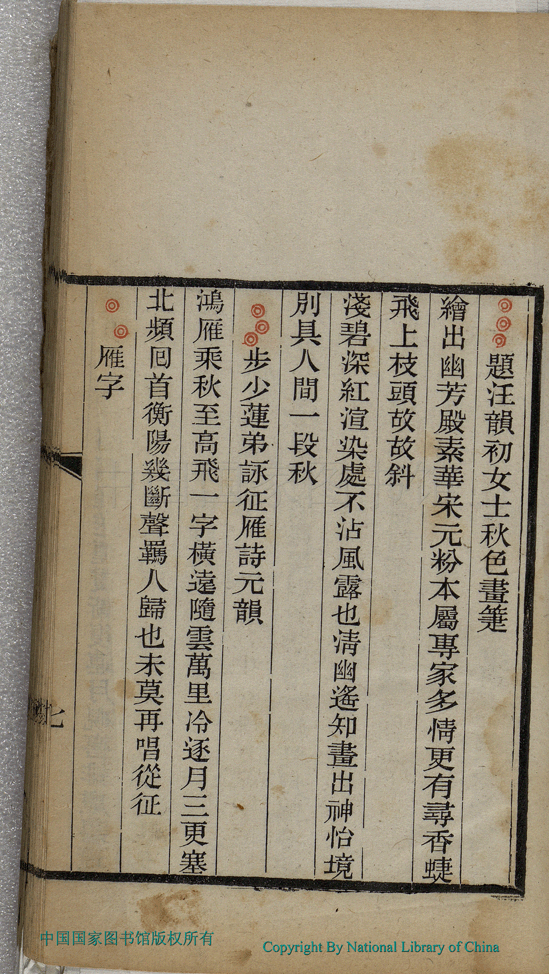 題汪韻初女士秋色畫箑
繪出幽芳殿素華宋元粉本屬專家多情更有尋香蜨
飛上枝頭故故斜
淺碧深紅渲染處不沾風露也淸幽遙知畫出神怡境
別具人間一段秋
步少蓮弟詠征雁詩元韻
鴻雁乘秋至高飛一字橫遠隨雲萬里冷逐月三更塞
北頻回首衡陽幾斷聲羈人歸也未莫再唱從征
雁字
七
中国国家图书馆版权所有
Copyright By National Library of China